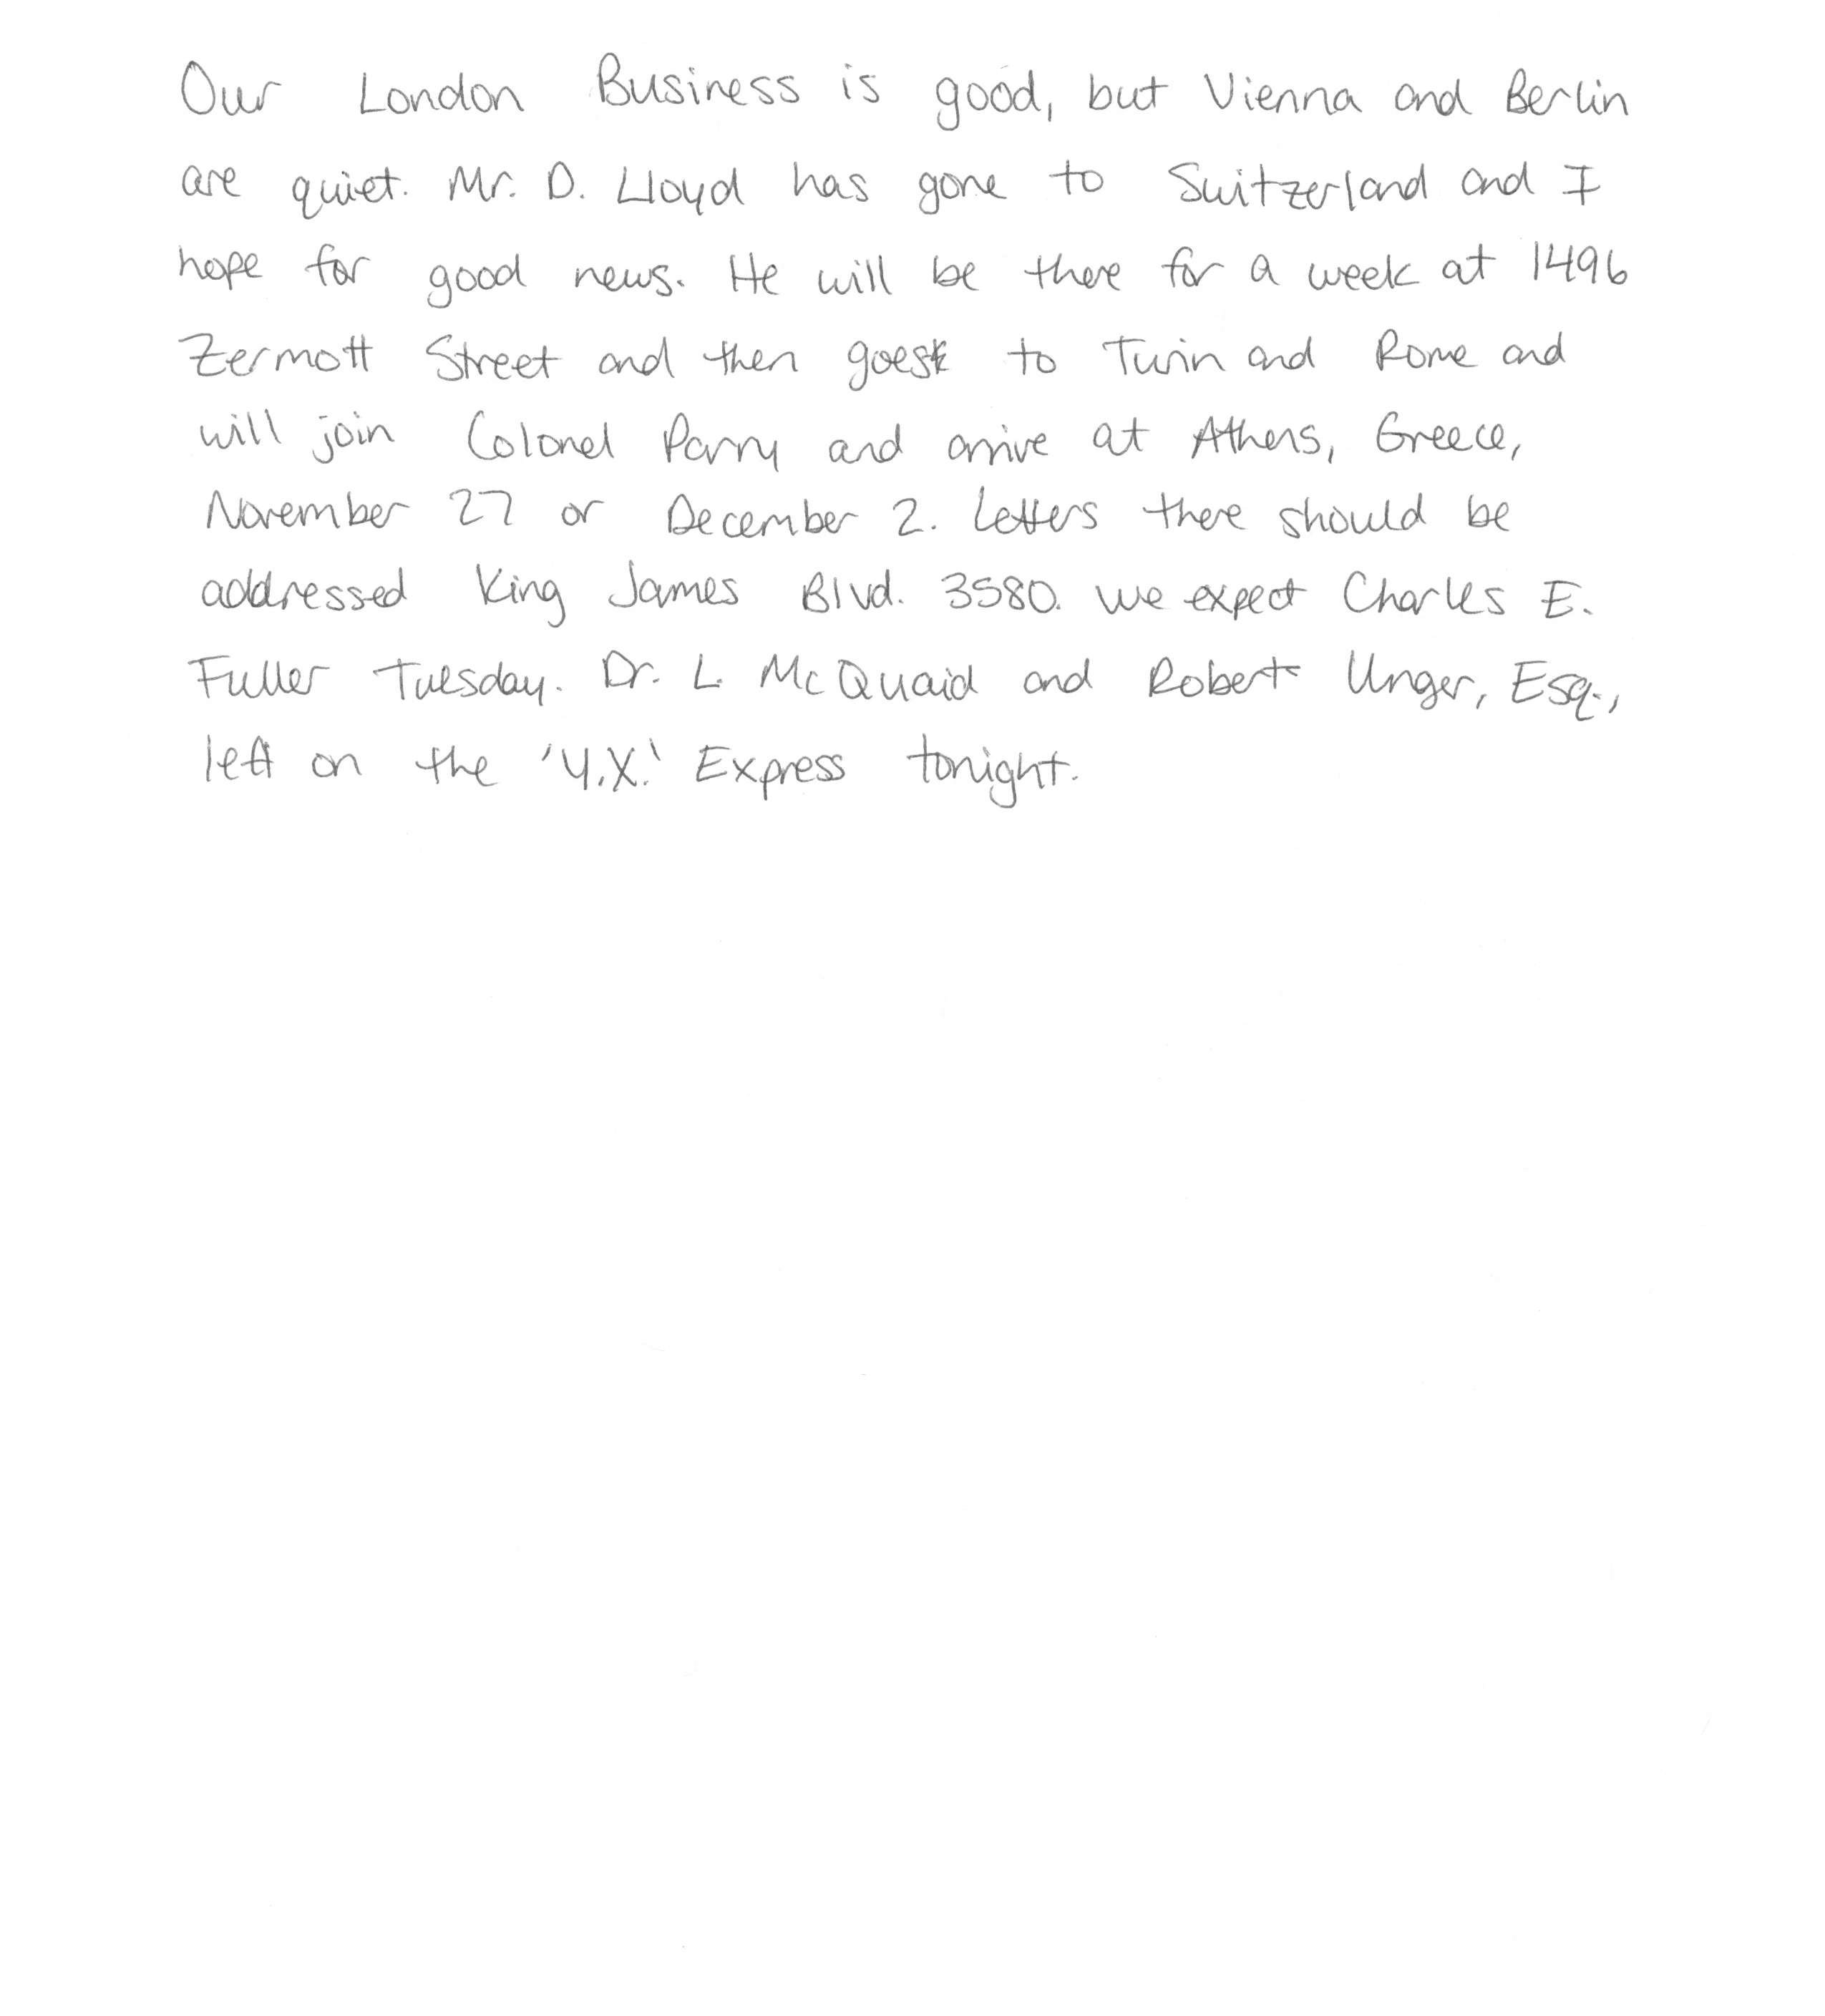 Our London Business is good, but Vienna and Berlin
are quiet. Mr. D. Lloyd has gone to Switzerland and I
hope for good news. He will be there for a week at 1496
Zermott Street and then goes to Turin and Rome and
will join Colonel Parry and arrive at Athens, Greece,
November 27 or December 2. Letters there should be
addressed King James Blvd. 3580. We expect Charles E.
Fuller Tuesday. Dr. L. McQuaid and Robert Unger, Esq.,
left on the 'Y.X.' Express tonight.